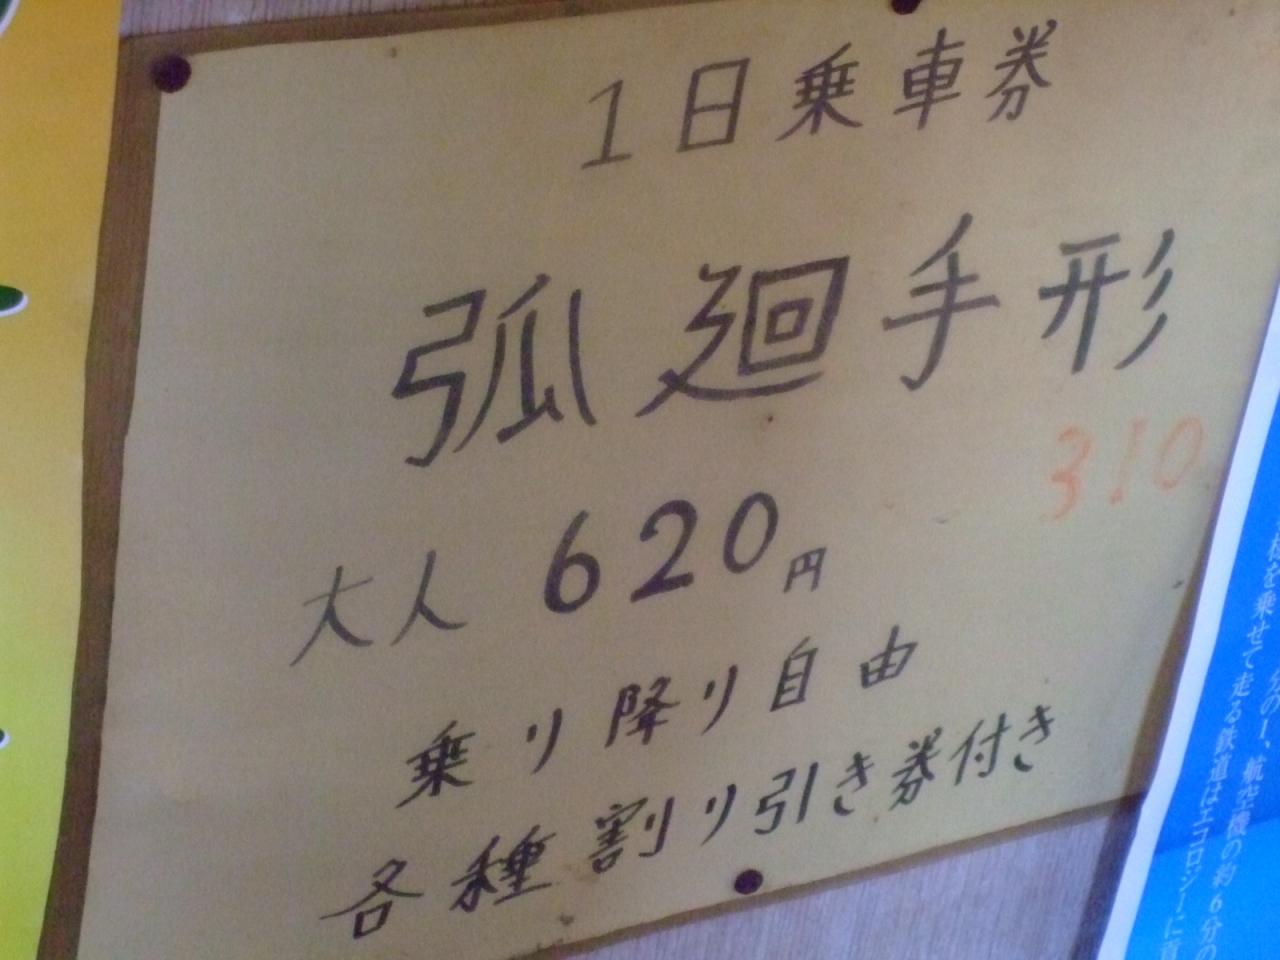 1日乗車券
弧廻手形
310
大人 620円
乗り降り自由
各種割り引き券付き
を乗せて走る鉄道はエコロジーに
分の1、航空機の約6分の